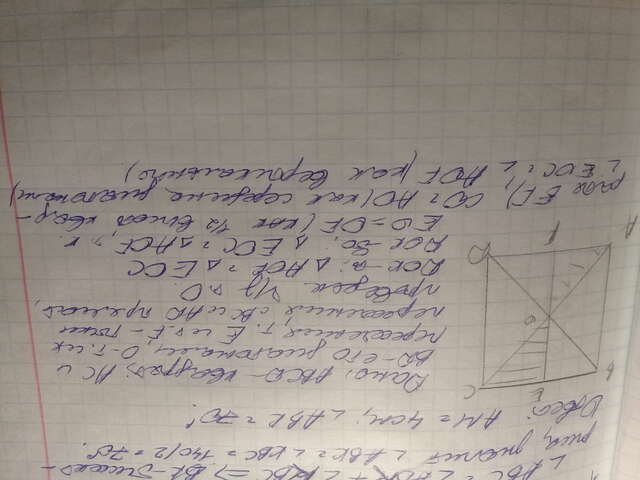 ∠ABC = ∠ABK + ∠KBC => BK - биссект-
риса, значит ∠ABK = ∠KBC = 140/2 = 70°.
Ответ: AM = 4см; ∠ABK = 70°.
B E C
O
A F D
Дано: ABCD - квадрат; AC и
BD - его диагонали, O - т. их
пересечения, т. E и т. F - точки
пересечения с BC и AD прямой,
провед. ч/з т. O.
Док-ть: △ AOF = △ EOC
Док-во: △ EOC = △ AOF, т. к.
EO = OF (как 1/2 высоты квад-
рата EF), CO = AO (как середина диагонали)
∠ EOC = ∠ AOF (как вертикальные)